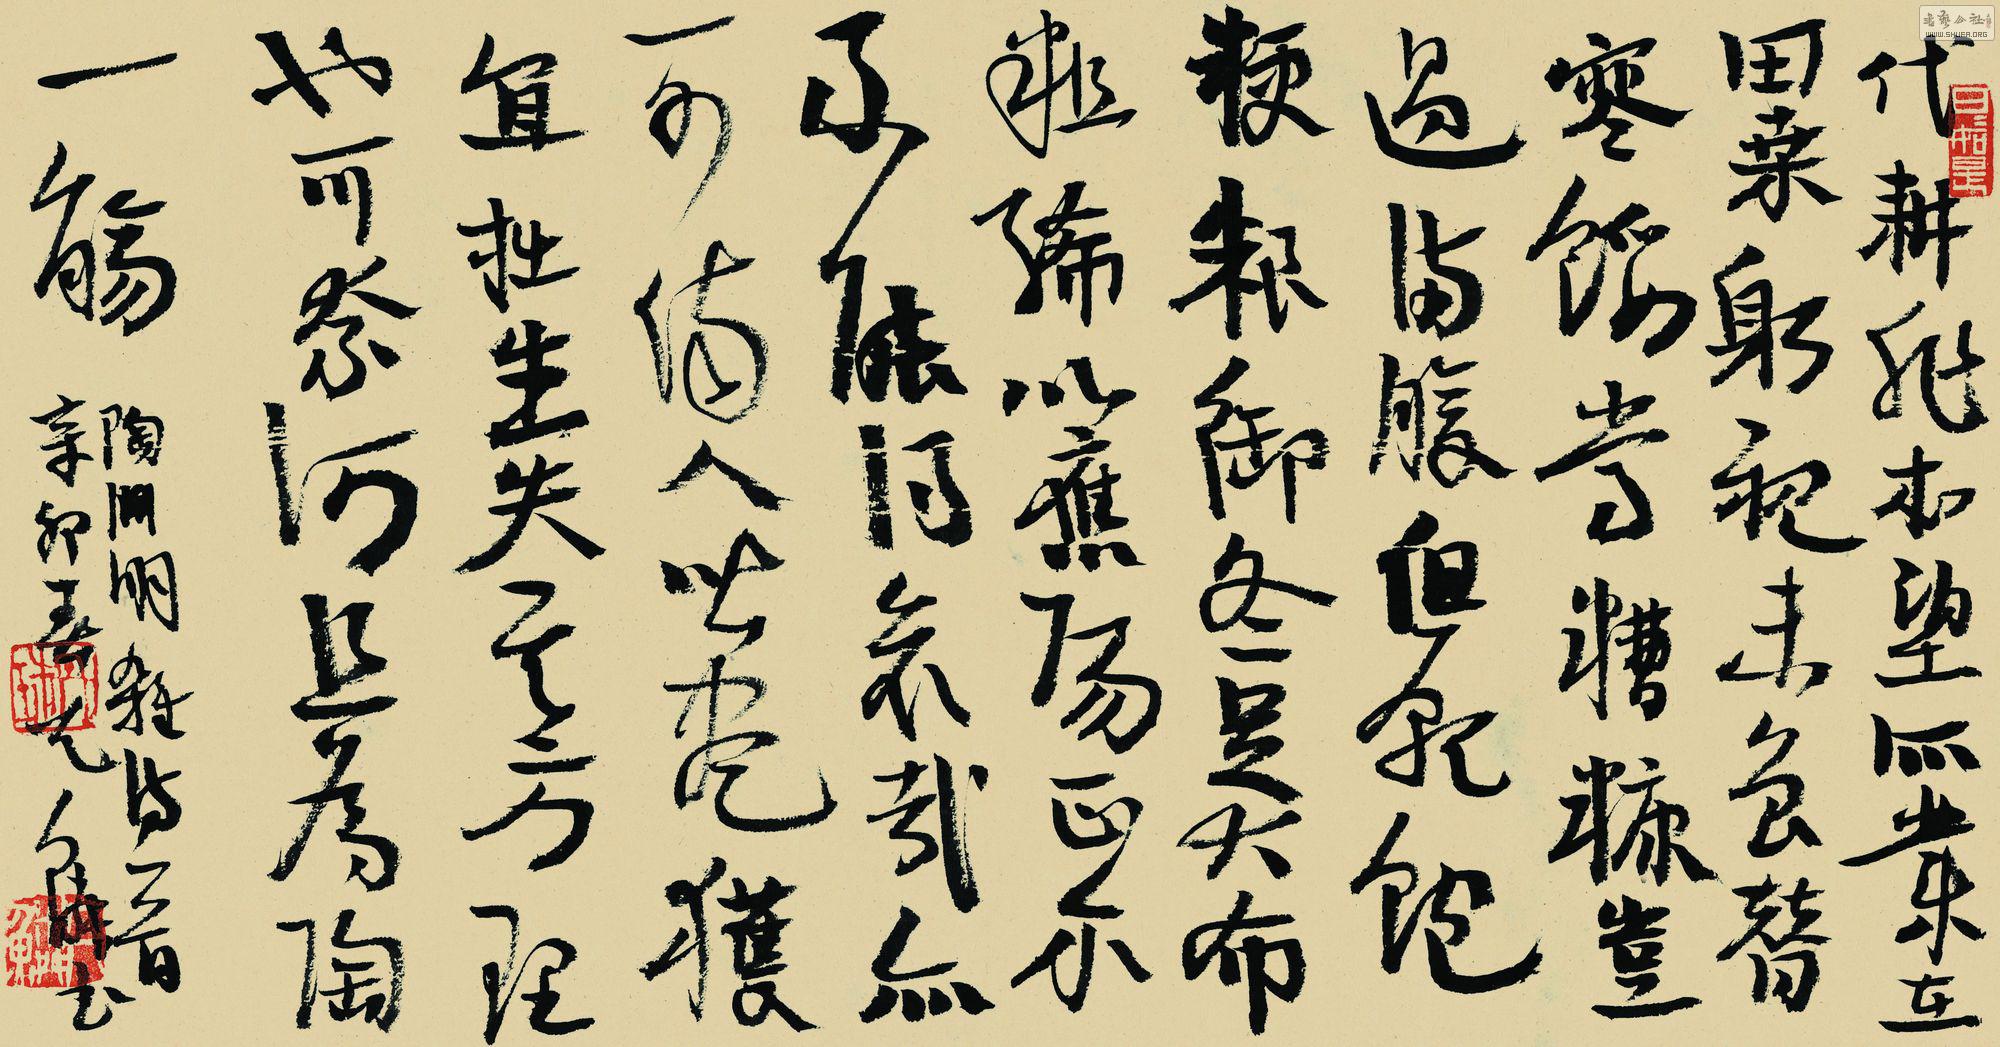 代耕非本望所業在
田桑躬親未曾替
寒餒常糟糠豈
過滿腹但願飽
粳糧御冬足大布
粗絺以應陽正爾
不能得哀哉亦
可傷人皆盡獲
宜拙生失其方理
也可奈何且為陶
一觴
陶淵明雜詩一首
辛卯春
書
書藝公社
WWW.SHUFA.ORG